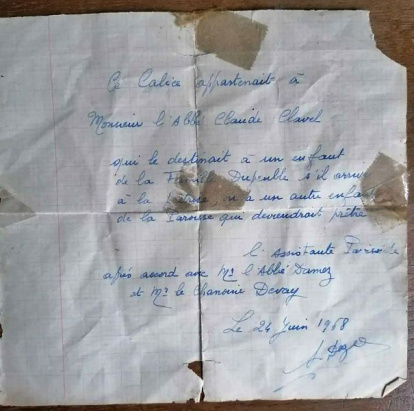 Ce Calice appartenait à
Monsieur l'Abbé Claude Clavel
qui le destinait à un enfant
de la Famille Dupeuble s'il arrive
à la prêtrise ou à un autre enfant
de la Paroisse qui deviendrait prêtre
L'Assistante Paroissiale
après accord avec Mr l'Abbé Damez
et Mr le Chanoine Devay
Le 24 Juin 1968